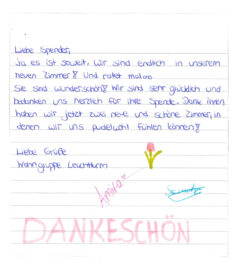 Liebe Spender,
ja es ist soweit. Wir sind endlich in unserem
neuen Zimmer! Und ratet mal wo
Sie sind wunderschön! Wir sind sehr glücklich und
bedanken uns herzlich für ihre Spende. Dank ihnen
haben wir jetzt zwei neue und schöne Zimmer, in
denen wir uns pudelwohl fühlen können!
Liebe Grüße
Wohngruppe Leuchtturm
Amira
DANKESCHÖN